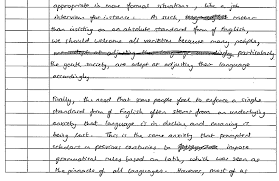 appropriate in more formal situations, like a job
interview for instance. As such, rather
than insisting on an absolute standard form of English,
we should welcome all varieties because many people,
particularly
the youth society, are adept at adjusting their language
accordingly.
Finally, the need that some people feel to enforce a single
standard form of English often stems from an underlying
anxiety that language is in decline and
being lost. This is the same anxiety that prompted
scholars in previous centuries to impose
grammatical rules based on Latin, which was seen as
the pinnacle of all languages. However, most of us